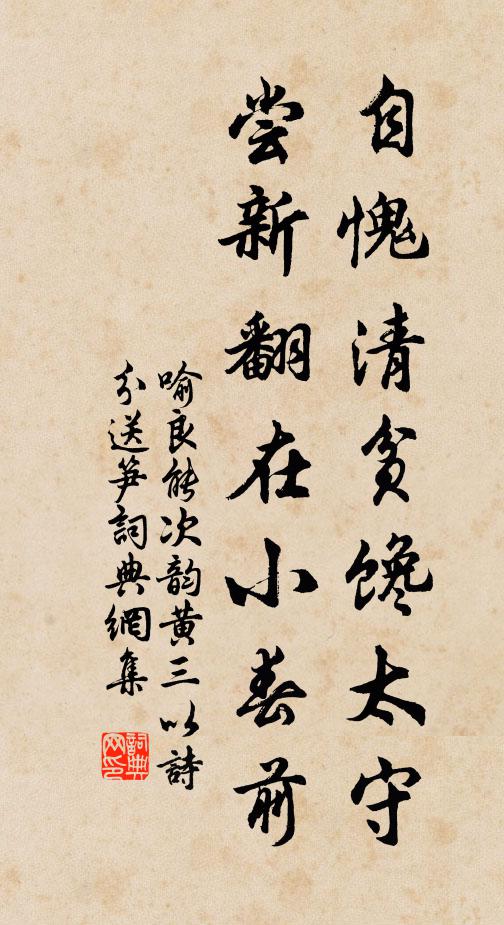 自愧清贫馋太守
尝新翻在小春前
喻良能次韵黄三以詩
分送笋詞典網集
詞典網印